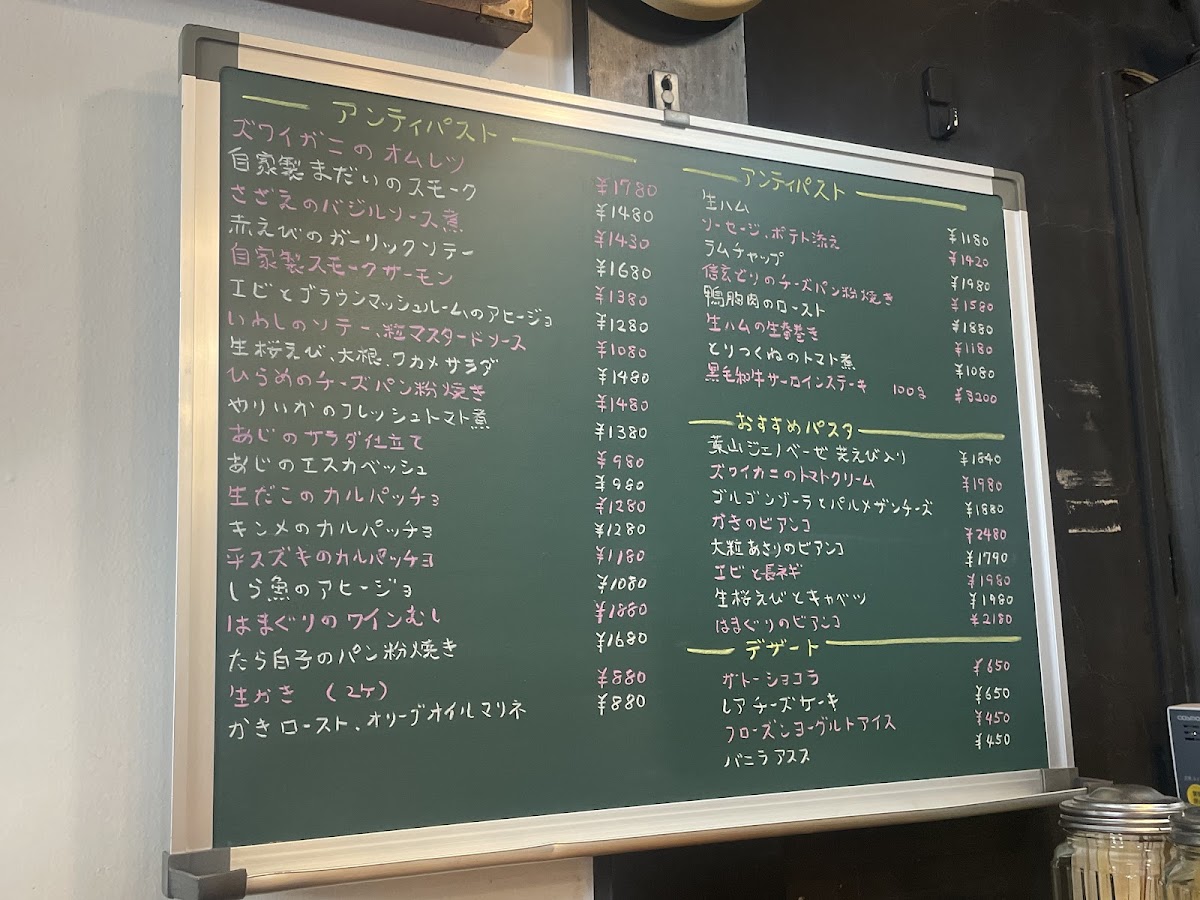 アンティパスト
ズワイガニのオムレツ ¥1780
自家製まだいのスモーク ¥1480
さざえのバジルソース煮 ¥1430
赤えびのガーリックソテー ¥1680
自家製スモークサーモン ¥1380
エビとブラウンマッシュルームのアヒージョ ¥1280
いわしのソテー、粒マスタードソース ¥1080
生桜えび、大根、ワカメサラダ ¥1480
ひらめのチーズパン粉焼き ¥1480
やりいかのフレッシュトマト煮 ¥1380
あじのサラダ仕立て ¥980
あじのエスカベッシュ ¥980
生だこのカルパッチョ ¥1280
キンメのカルパッチョ ¥1280
平スズキのカルパッチョ ¥1180
しら魚のアヒージョ ¥1080
はまぐりのワインむし ¥1880
たら白子のパン粉焼き ¥1680
生かき (2ケ) ¥880
かきロースト、オリーブオイルマリネ ¥880
アンティパスト
生ハム ¥1180
ソーセージ、ポテト添え ¥1420
ラムチャップ ¥1980
信玄どりのチーズパン粉焼き ¥1580
鴨胸肉のロースト ¥1880
生ハムの生春巻き ¥1180
とりつくねのトマト煮 ¥1080
黒毛和牛サーロインステーキ 100g ¥3200
おすすめパスタ
葉山ジェノベーゼ 芝えび入り ¥1840
ズワイカニのトマトクリーム ¥1980
ゴルゴンゾーラとパルメザンチーズ ¥1880
かきのビアンコ ¥2480
大粒あさりのビアンコ ¥1790
エビと長ネギ ¥1980
生桜えびとキャベツ ¥1980
はまぐりのビアンコ ¥2180
デザート
ガトーショコラ ¥650
レアチーズケーキ ¥650
フローズンヨーグルトアイス ¥450
バニラアイス ¥450